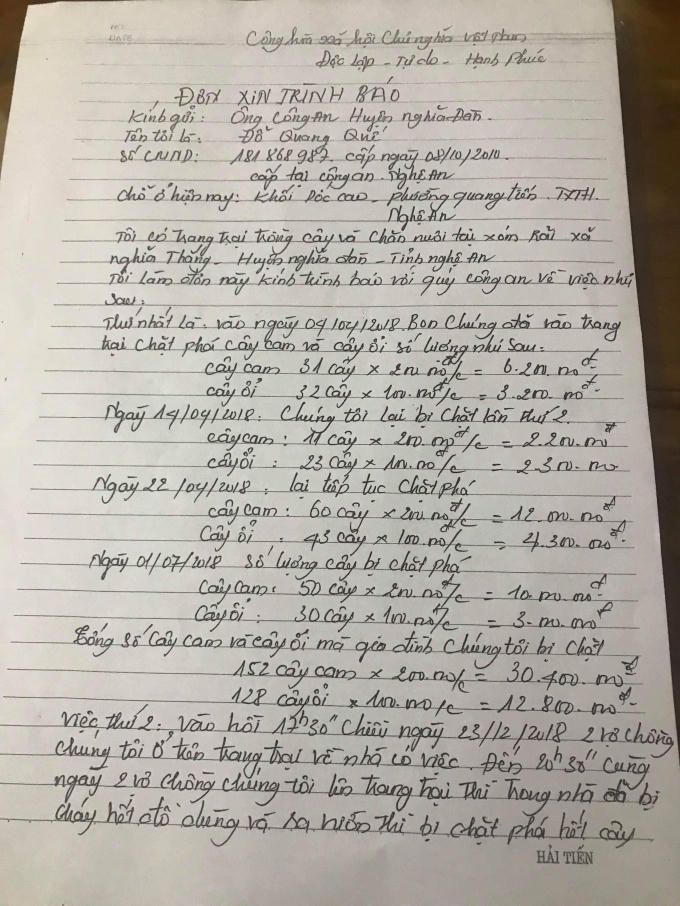 Cộng hòa xã hội Chủ nghĩa Việt Nam
Độc lập - Tự do - Hạnh Phúc
ĐƠN XIN TRÌNH BÁO
Kính gửi: Ông Công An Huyện nghĩa Đàn.
Tên tôi là: Đỗ Quang Quế
Số CMND: 181 868 987. cấp ngày 08/10/2010.
cấp tại công an. Nghệ An
Chỗ ở hiện nay: Khối Dốc cao - phường quang tiến. TXTH.
Nghệ An
Tôi có trang trại trồng cây và chăn nuôi tại xóm xã
nghĩa Thắng - Huyện nghĩa đàn - Tỉnh nghệ An
Tôi làm đơn này kính trình báo với quý công an về việc như
sau:
Thứ nhất là: vào ngày 04/04/2018. Bọn Chúng đã vào trang
trại chặt phá cây cam và cây ổi số lượng như sau:
cây cam 31 cây x 200.000đ/c = 6.200.000đ
cây ổi 32 cây x 100.000đ/c = 3.200.000đ
Ngày 14/04/2018: Chúng tôi lại bị chặt lần thứ 2.
cây cam: 11 cây x 200.000đ/c = 2.200.000đ
cây ổi: 23 cây x 100.000đ/c = 2.300.000
Ngày 22/04/2018: lại tiếp tục chặt phá
cây cam: 60 cây x 200.000đ/c = 12.000.000đ
Cây ổi: 43 cây x 100.000đ/c = 4.300.000đ
Ngày 01/07/2018 số lượng cây bị chặt phá
Cây cam: 50 cây x 200.000đ/c = 10.000.000đ
Cây ổi: 30 cây x 100.000đ/c = 3.000.000đ
Tổng số cây cam và cây ổi mà gia đình chúng tôi bị chặt
152 cây cam x 200.000/c = 30.400.000đ
128 cây ổi x 100.000/c = 12.800.000đ
Việc thứ 2: vào hồi 17h30" chiều ngày 23/12/2018 2 vợ chồng
chúng tôi ở trên trang trại về nhà có việc. Đến 20h30" cùng
ngày 2 vợ chồng chúng tôi lên trang trại thì trong nhà đã bị
cháy hết đồ dùng và ra vườn thì bị chặt phá hết cây
HẢI TIẾN